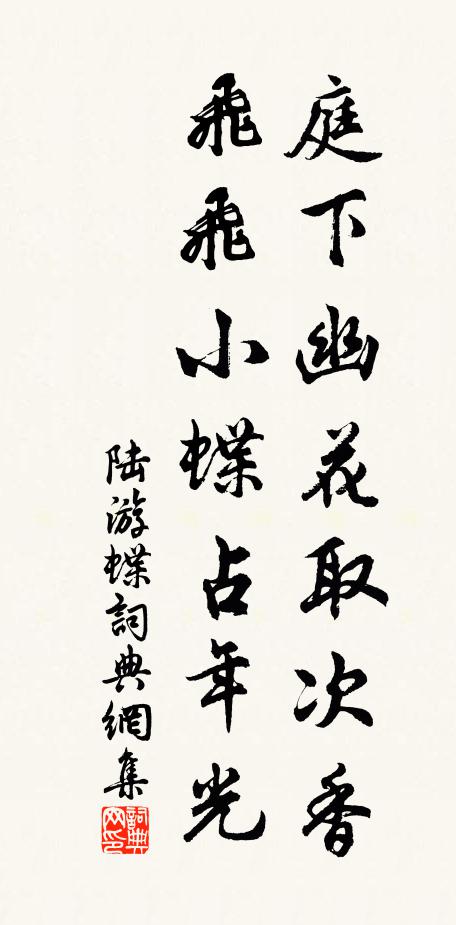 庭下幽花取次香
飛飛小蝶占年光
陆游蝶詞典網集
詞典网印